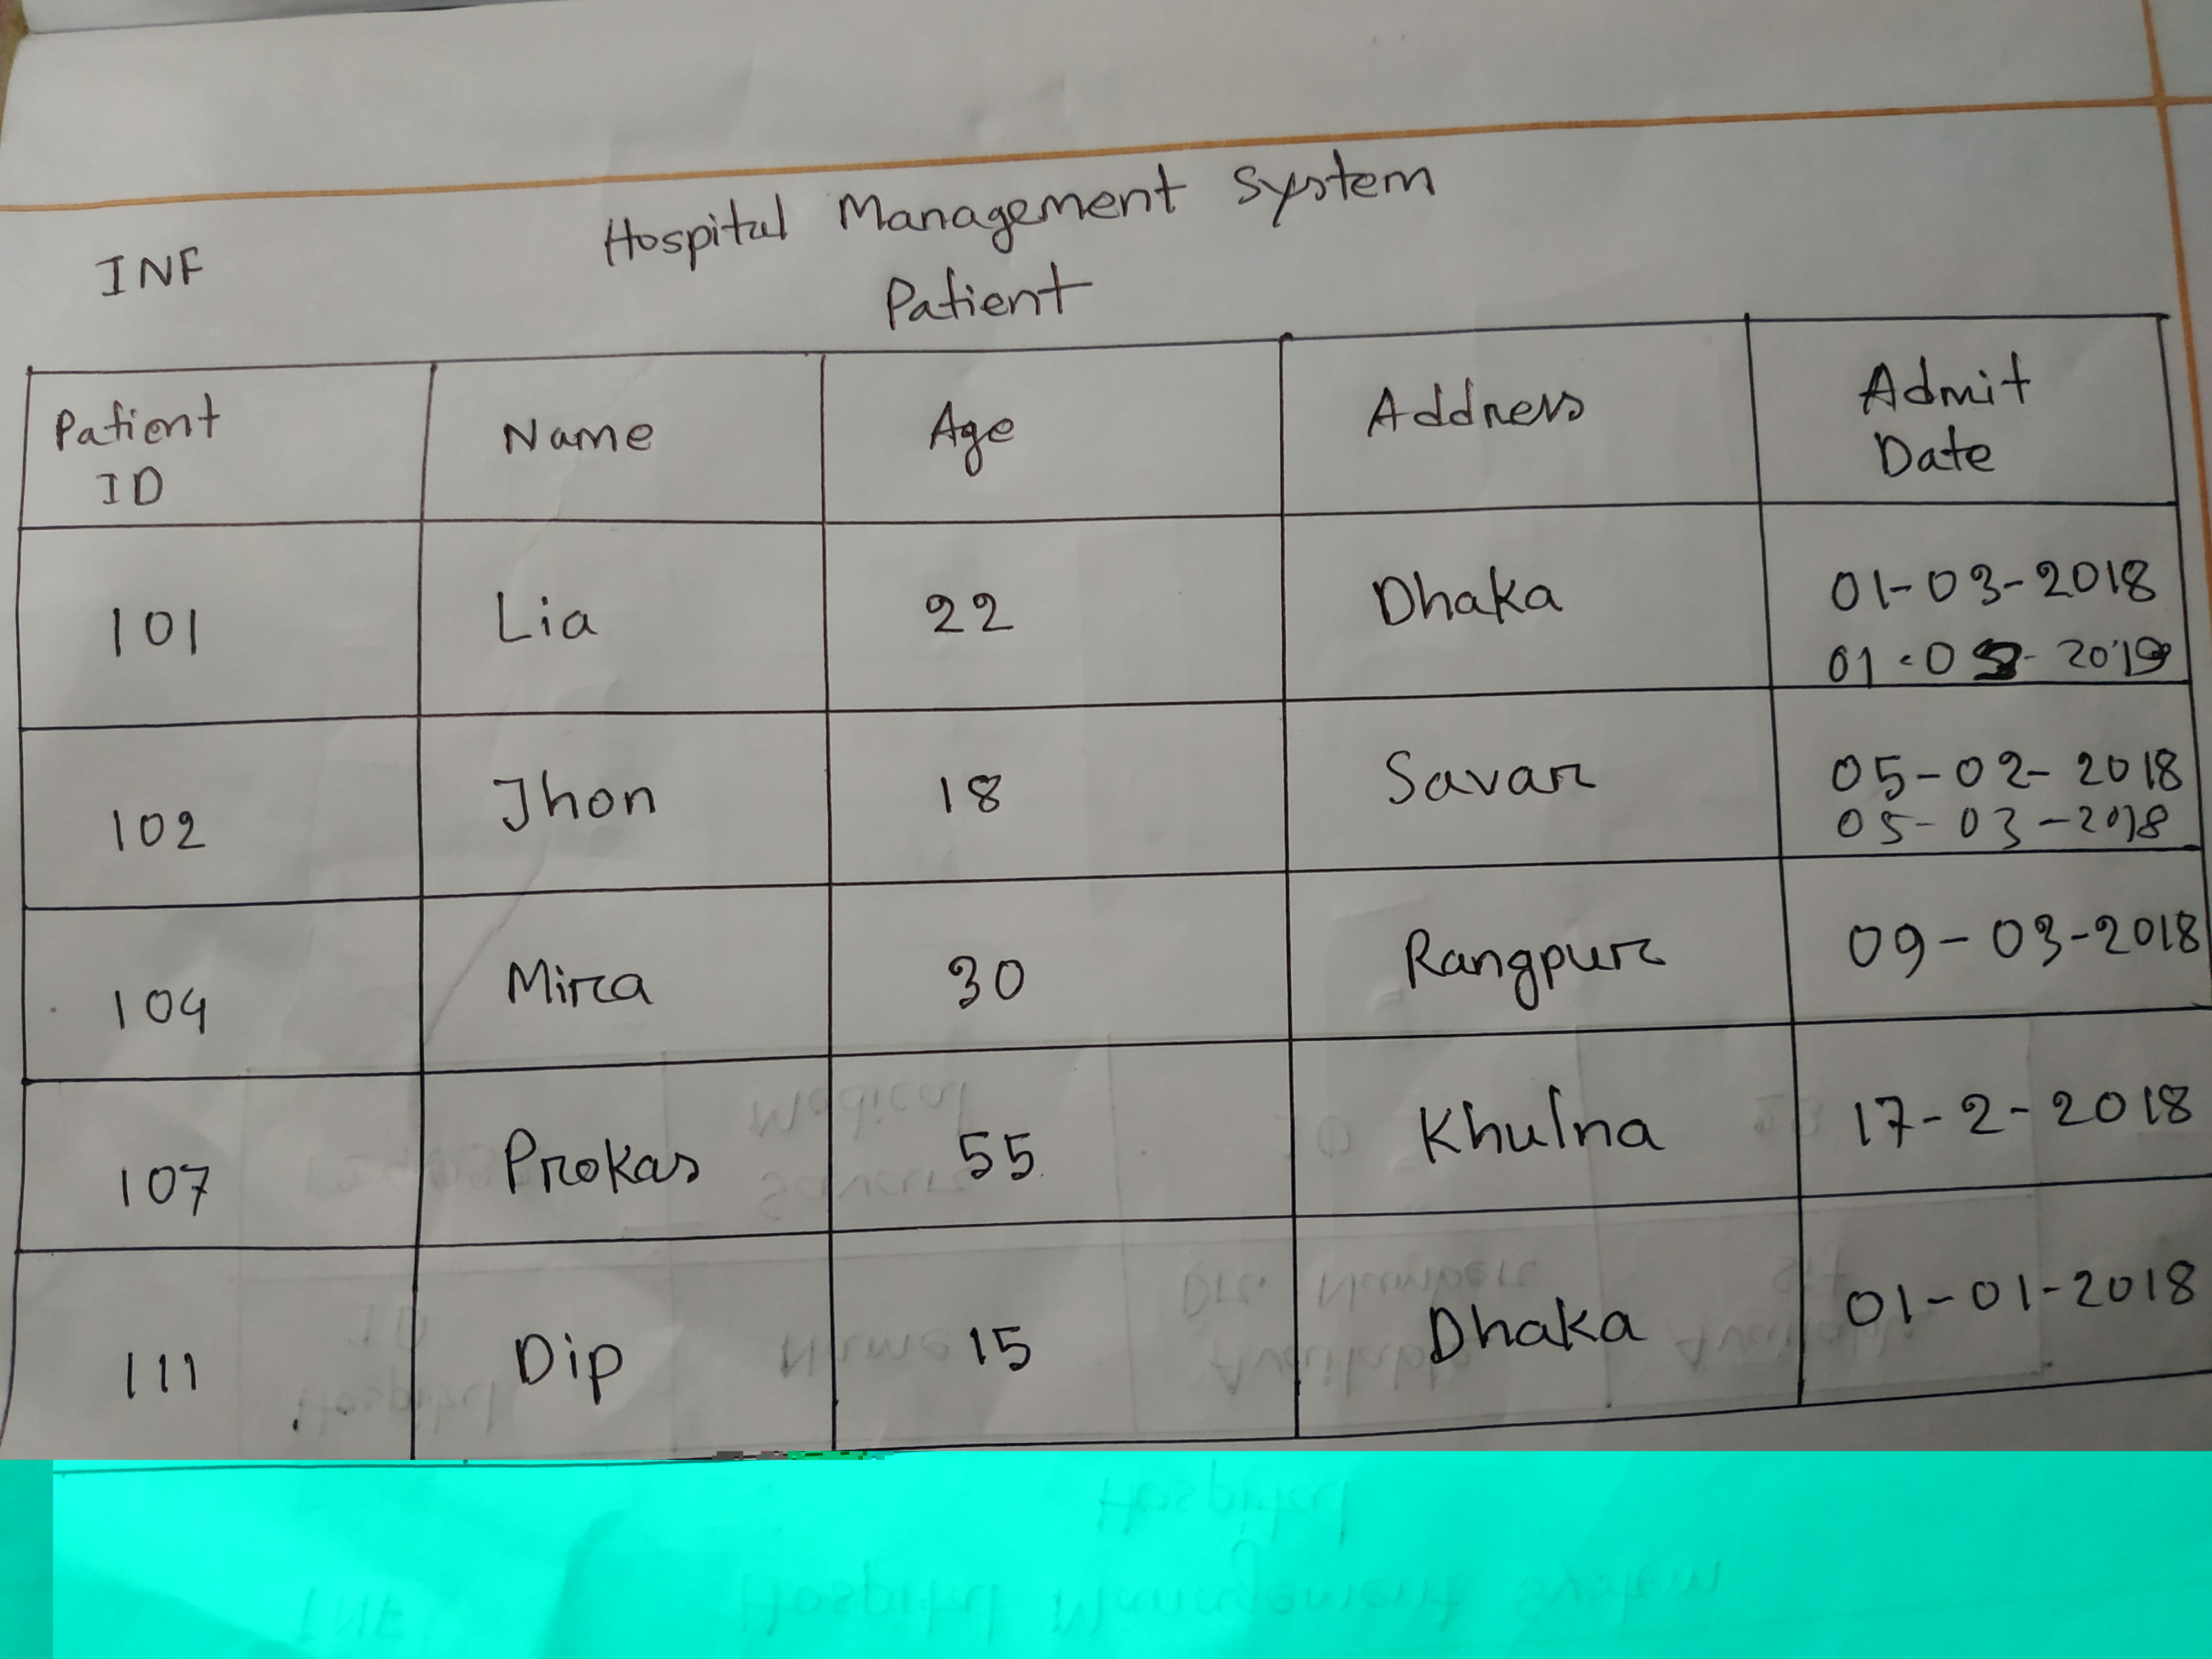 Hospital Management System
INF
Patient
Patient ID Name Age Address Admit Date
101 Lia 22 Dhaka 01-03-2018
01-0 - 2019
102 Jhon 18 Savar 05-02-2018
05-03-2018
104 Mira 30 Rangpur 09-03-2018
107 Prokas 55 Khulna 17-2-2018
111 Dip 15 Dhaka 01-01-2018